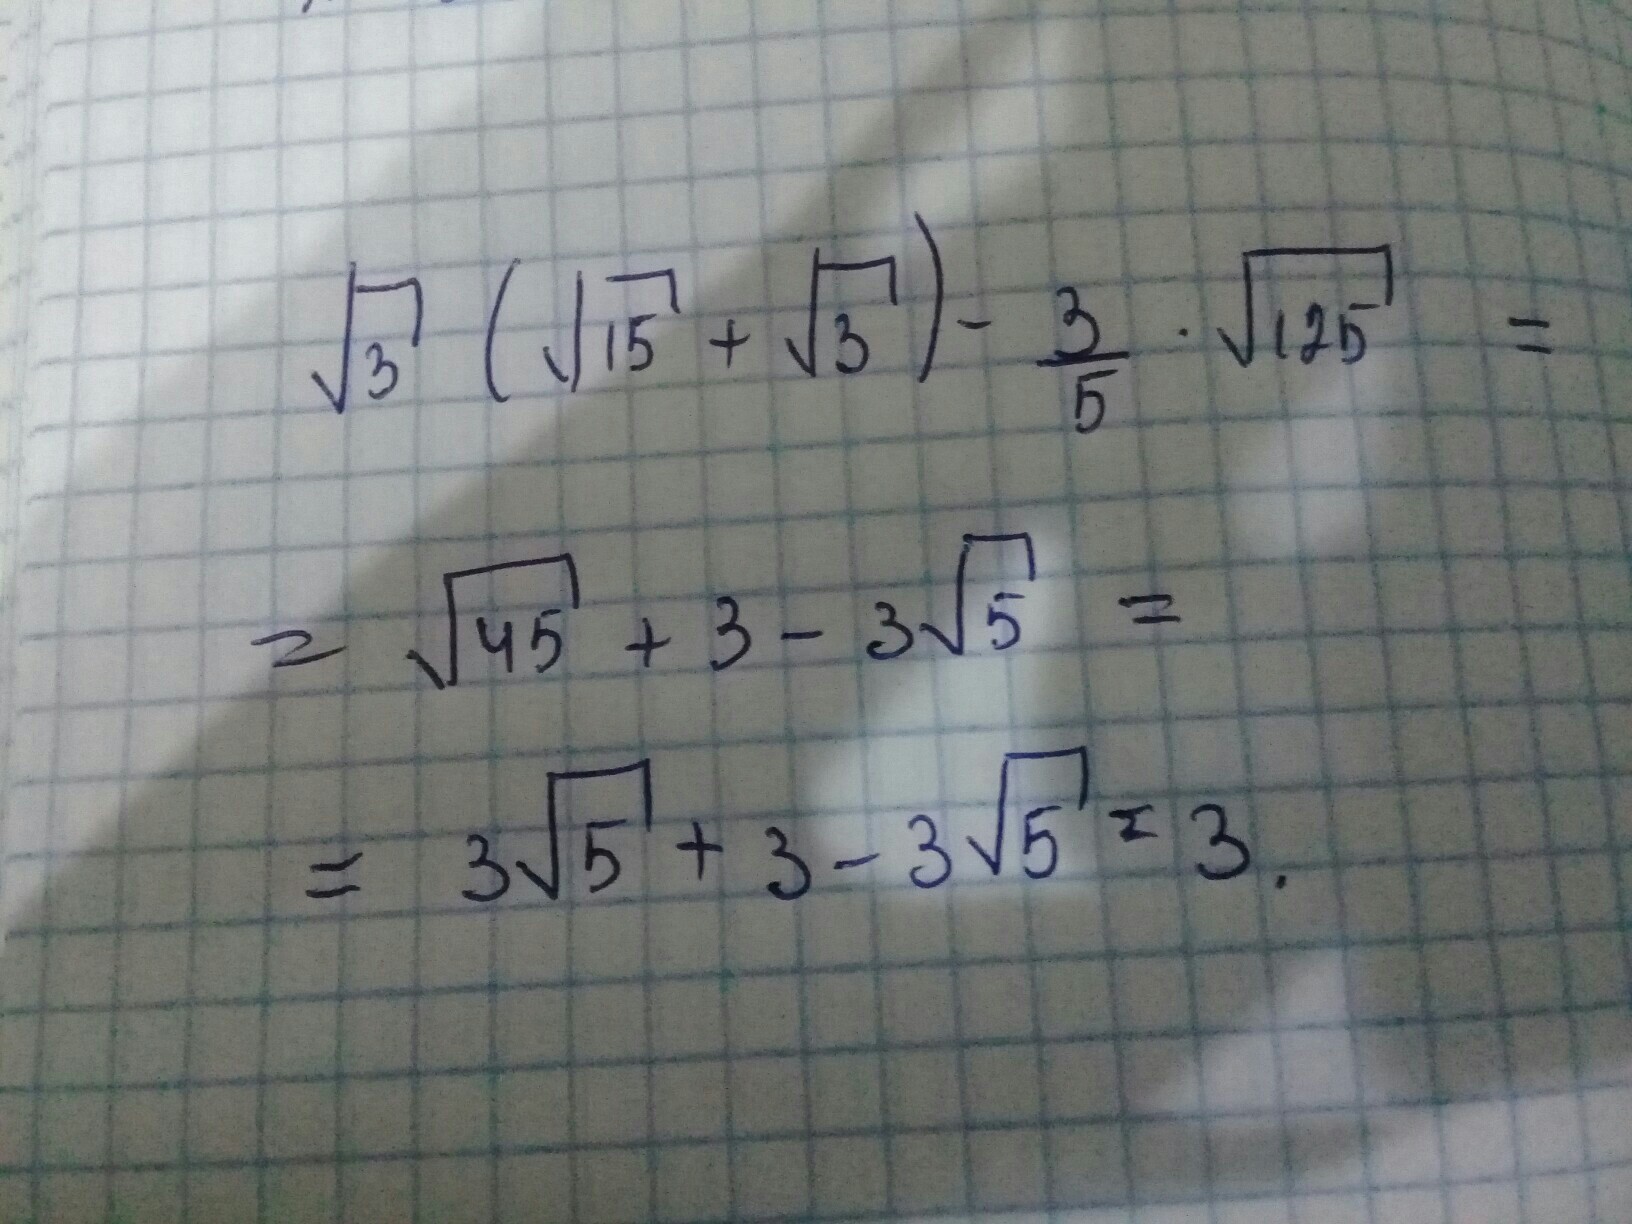 √3 (√15 + √3) - 3/5 · √125 =
= √45 + 3 - 3√5 =
= 3√5 + 3 - 3√5 = 3.